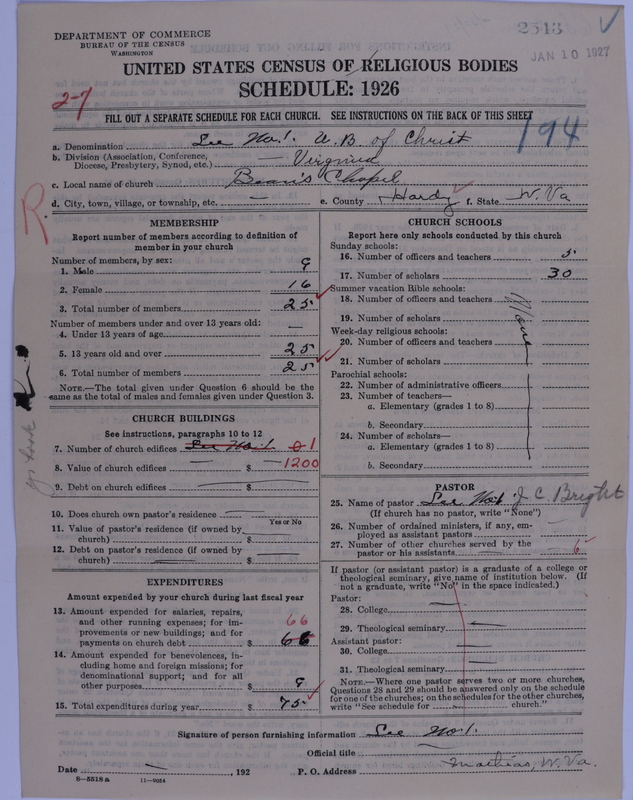 DEPARTMENT OF COMMERCE
BUREAU OF THE CENSUS
WASHINGTON
2543
JAN 10 1927
UNITED STATES CENSUS OF RELIGIOUS BODIES
SCHEDULE: 1926
2-7
FILL OUT A SEPARATE SCHEDULE FOR EACH CHURCH. SEE INSTRUCTIONS ON THE BACK OF THIS SHEET
194
a. Denomination See No. 1. U.B. of Christ
b. Division (Association, Conference, Diocese, Presbytery, Synod, etc.) — Virginia
c. Local name of church Bean's Chapel
d. City, town, village, or township, etc. — e. County Hardy f. State W. Va
R
MEMBERSHIP
Report number of members according to definition of member in your church
Number of members, by sex:
1. Male 9
2. Female 16
3. Total number of members 25
Number of members under and over 13 years old:
4. Under 13 years of age —
5. 13 years old and over 25
6. Total number of members 25
NOTE.—The total given under Question 6 should be same as the total of males and females given under Question 3.
CHURCH BUILDINGS
See instructions, paragraphs 10 to 12
7. Number of church edifices See No. 1. 1
8. Value of church edifices — $ 1200
9. Debt on church edifices — $
10. Does church own pastor's residence —
Yes or No
11. Value of pastor's residence (if owned by church) — $
12. Debt on pastor's residence (if owned by church) — $
EXPENDITURES
Amount expended by your church during last fiscal year
13. Amount expended for salaries, repairs, and other running expenses; for improvements or new buildings; and for payments on church debt $ 66
66
14. Amount expended for benevolences, including home and foreign missions; for denominational support; and for all other purposes $ 9
15. Total expenditures during year $ 75
CHURCH SCHOOLS
Report here only schools conducted by this church
Sunday schools:
16. Number of officers and teachers 5
17. Number of scholars 30
Summer vacation Bible schools:
18. Number of officers and teachers
19. Number of scholars
None
Week-day religious schools:
20. Number of officers and teachers
21. Number of scholars
Parochial schools:
22. Number of administrative officers
23. Number of teachers—
a. Elementary (grades 1 to 8)
b. Secondary
24. Number of scholars—
a. Elementary (grades 1 to 8)
b. Secondary
PASTOR
25. Name of pastor See No. 1 J. C. Bright
(If church has no pastor, write "None")
26. Number of ordained ministers, if any, employed as assistant pastors —
27. Number of other churches served by the pastor or his assistants — 6
If pastor (or assistant pastor) is a graduate of a college or theological seminary, give name of institution below. (If not a graduate, write "No" in the space indicated.)
Pastor:
28. College —
29. Theological seminary —
Assistant pastor:
30. College —
31. Theological seminary —
NOTE.—Where one pastor serves two or more churches, Questions 28 and 29 should be answered only on the schedule for one of the churches; on the schedules for the other churches, write "See schedule for church."
Signature of person furnishing information See No. 1.
Official title —
Date —, 192
P. O. Address Mathias, W. Va.
8—5518 a 11—9024